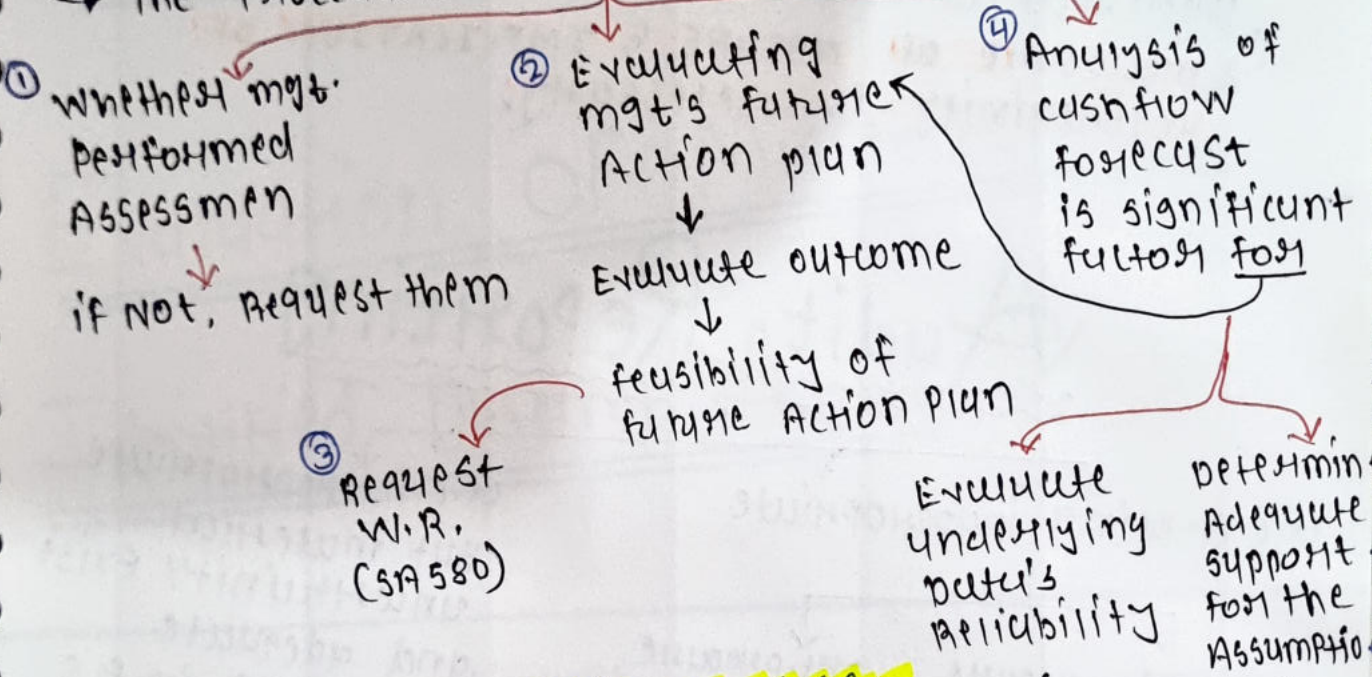 ① Whether mgt.
performed
Assessmen
if Not, Request them
② Evaluating
mgt's future
Action plan
Evaluate outcome
feasibility of
future Action Plan
③ Request
W.R.
(SA 580)
④ Analysis of
cashflow
forecast
is significant
factor for
Evaluate
underlying
Data's
Reliability
Determin
Adequate
support
for the
Assumptio